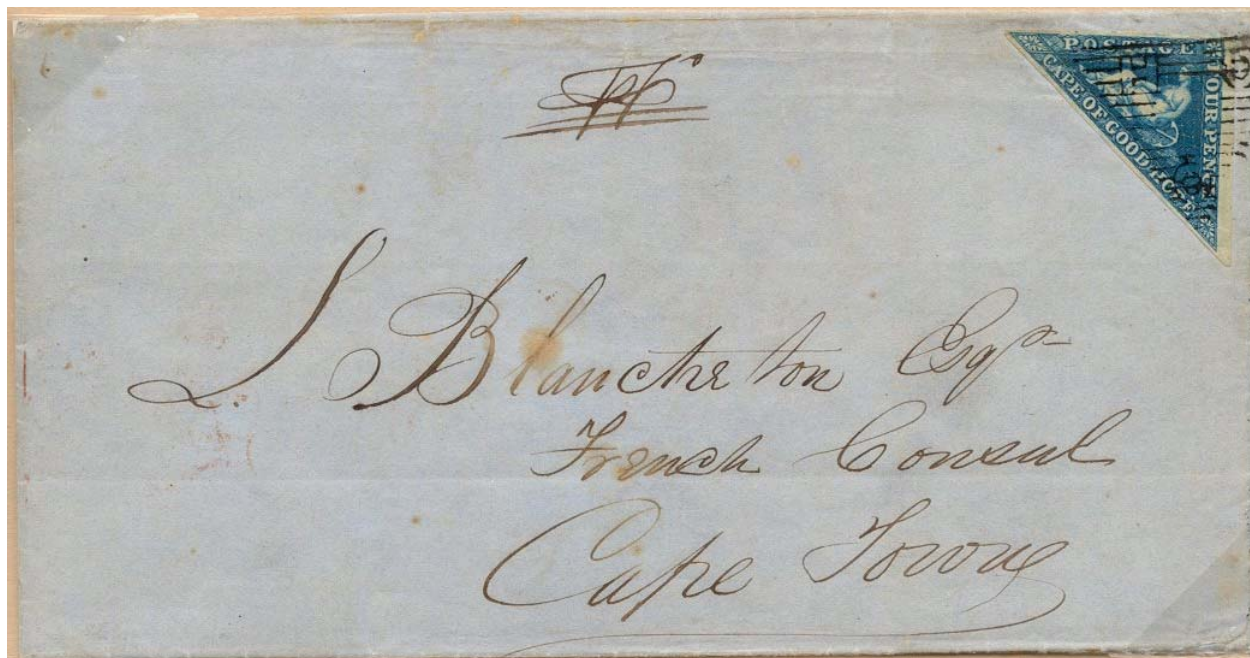 POSTAGE
FOUR PENCE
CAPE OF GOOD HOPE
L. Blancheton Esqr
French Consul
Cape Town